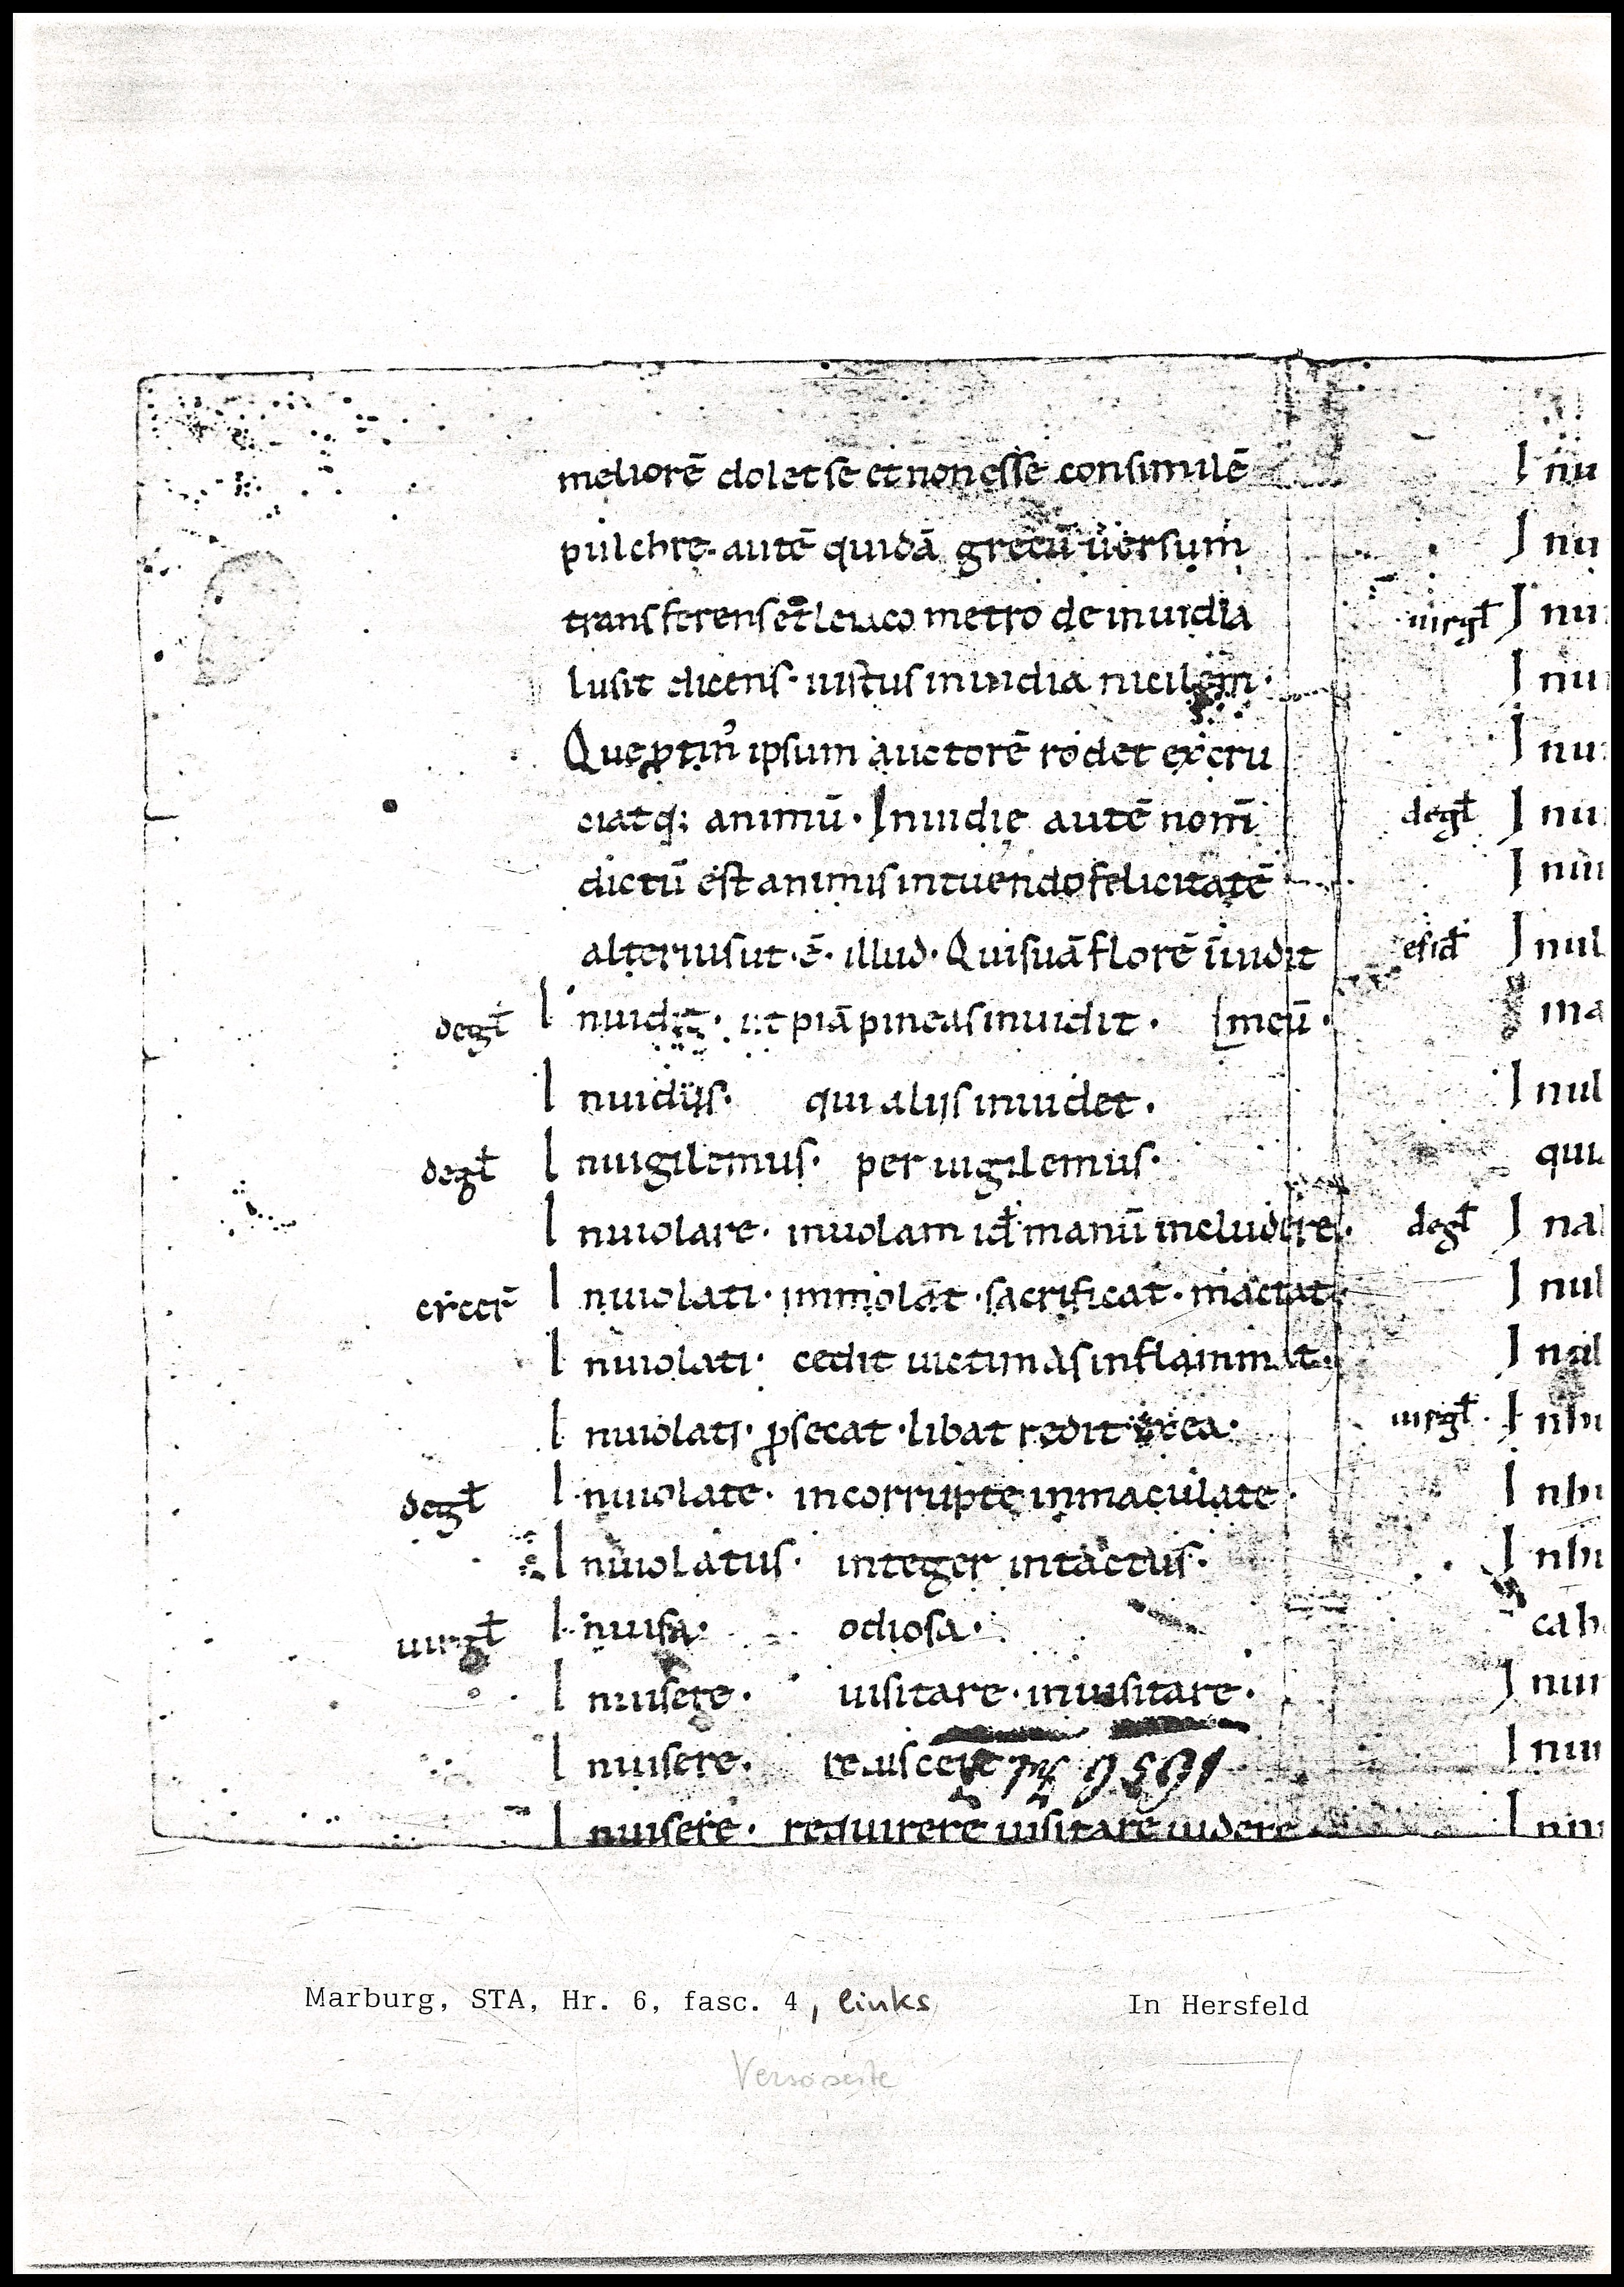 meliorē dolet se et non esse consimilē
pulchrę autē quidā grecū uersum
transferens et leiaco metro de inuidia
lusit dicens · iustus inuidia nicil em ·
Que ꝑtin᷒ ipsum auctorē rodet excru
ciatq; animū · Inuidię autē nom̄
dictū est animis intuendo felicitatē
alterius ut · ē · illud · Quis uā florē īuidit
degł Inuidit · ut piā pineas inuidit · [meū ·
Inuidijs · qui alijs inuidet ·
degł Inuigilemus · per uigilemus ·
Inuiolare · inuolam id manū includere ·
ercer̄ Inuiolati · immolat · sacrificat · mactat ·
Inuiolati · cedit uictimas inflammat ·
Inuiolati · ꝓsecat · libat redit
degł Inuiolate · incorrupte inmaculate ·
Inuiolatus · integer intactus ·
uirgł Inuisa · odiosa ·
Inuisere · uisitare · inuisitare ·
Inuisere ·
Inuisere · requirere uisitare uidere
I nu
I nu
uirgł I nu
I nu
I nu
degł I nu
I nui
esid I nul
ma
I nul
qui
degł I na
I nul
I nal
uirgł · I nhi
I nhi
I nhi
cah
I nui
I nui
I nu
Marburg, STA, Hr. 6, fasc. 4, links In Hersfeld
Versoseite